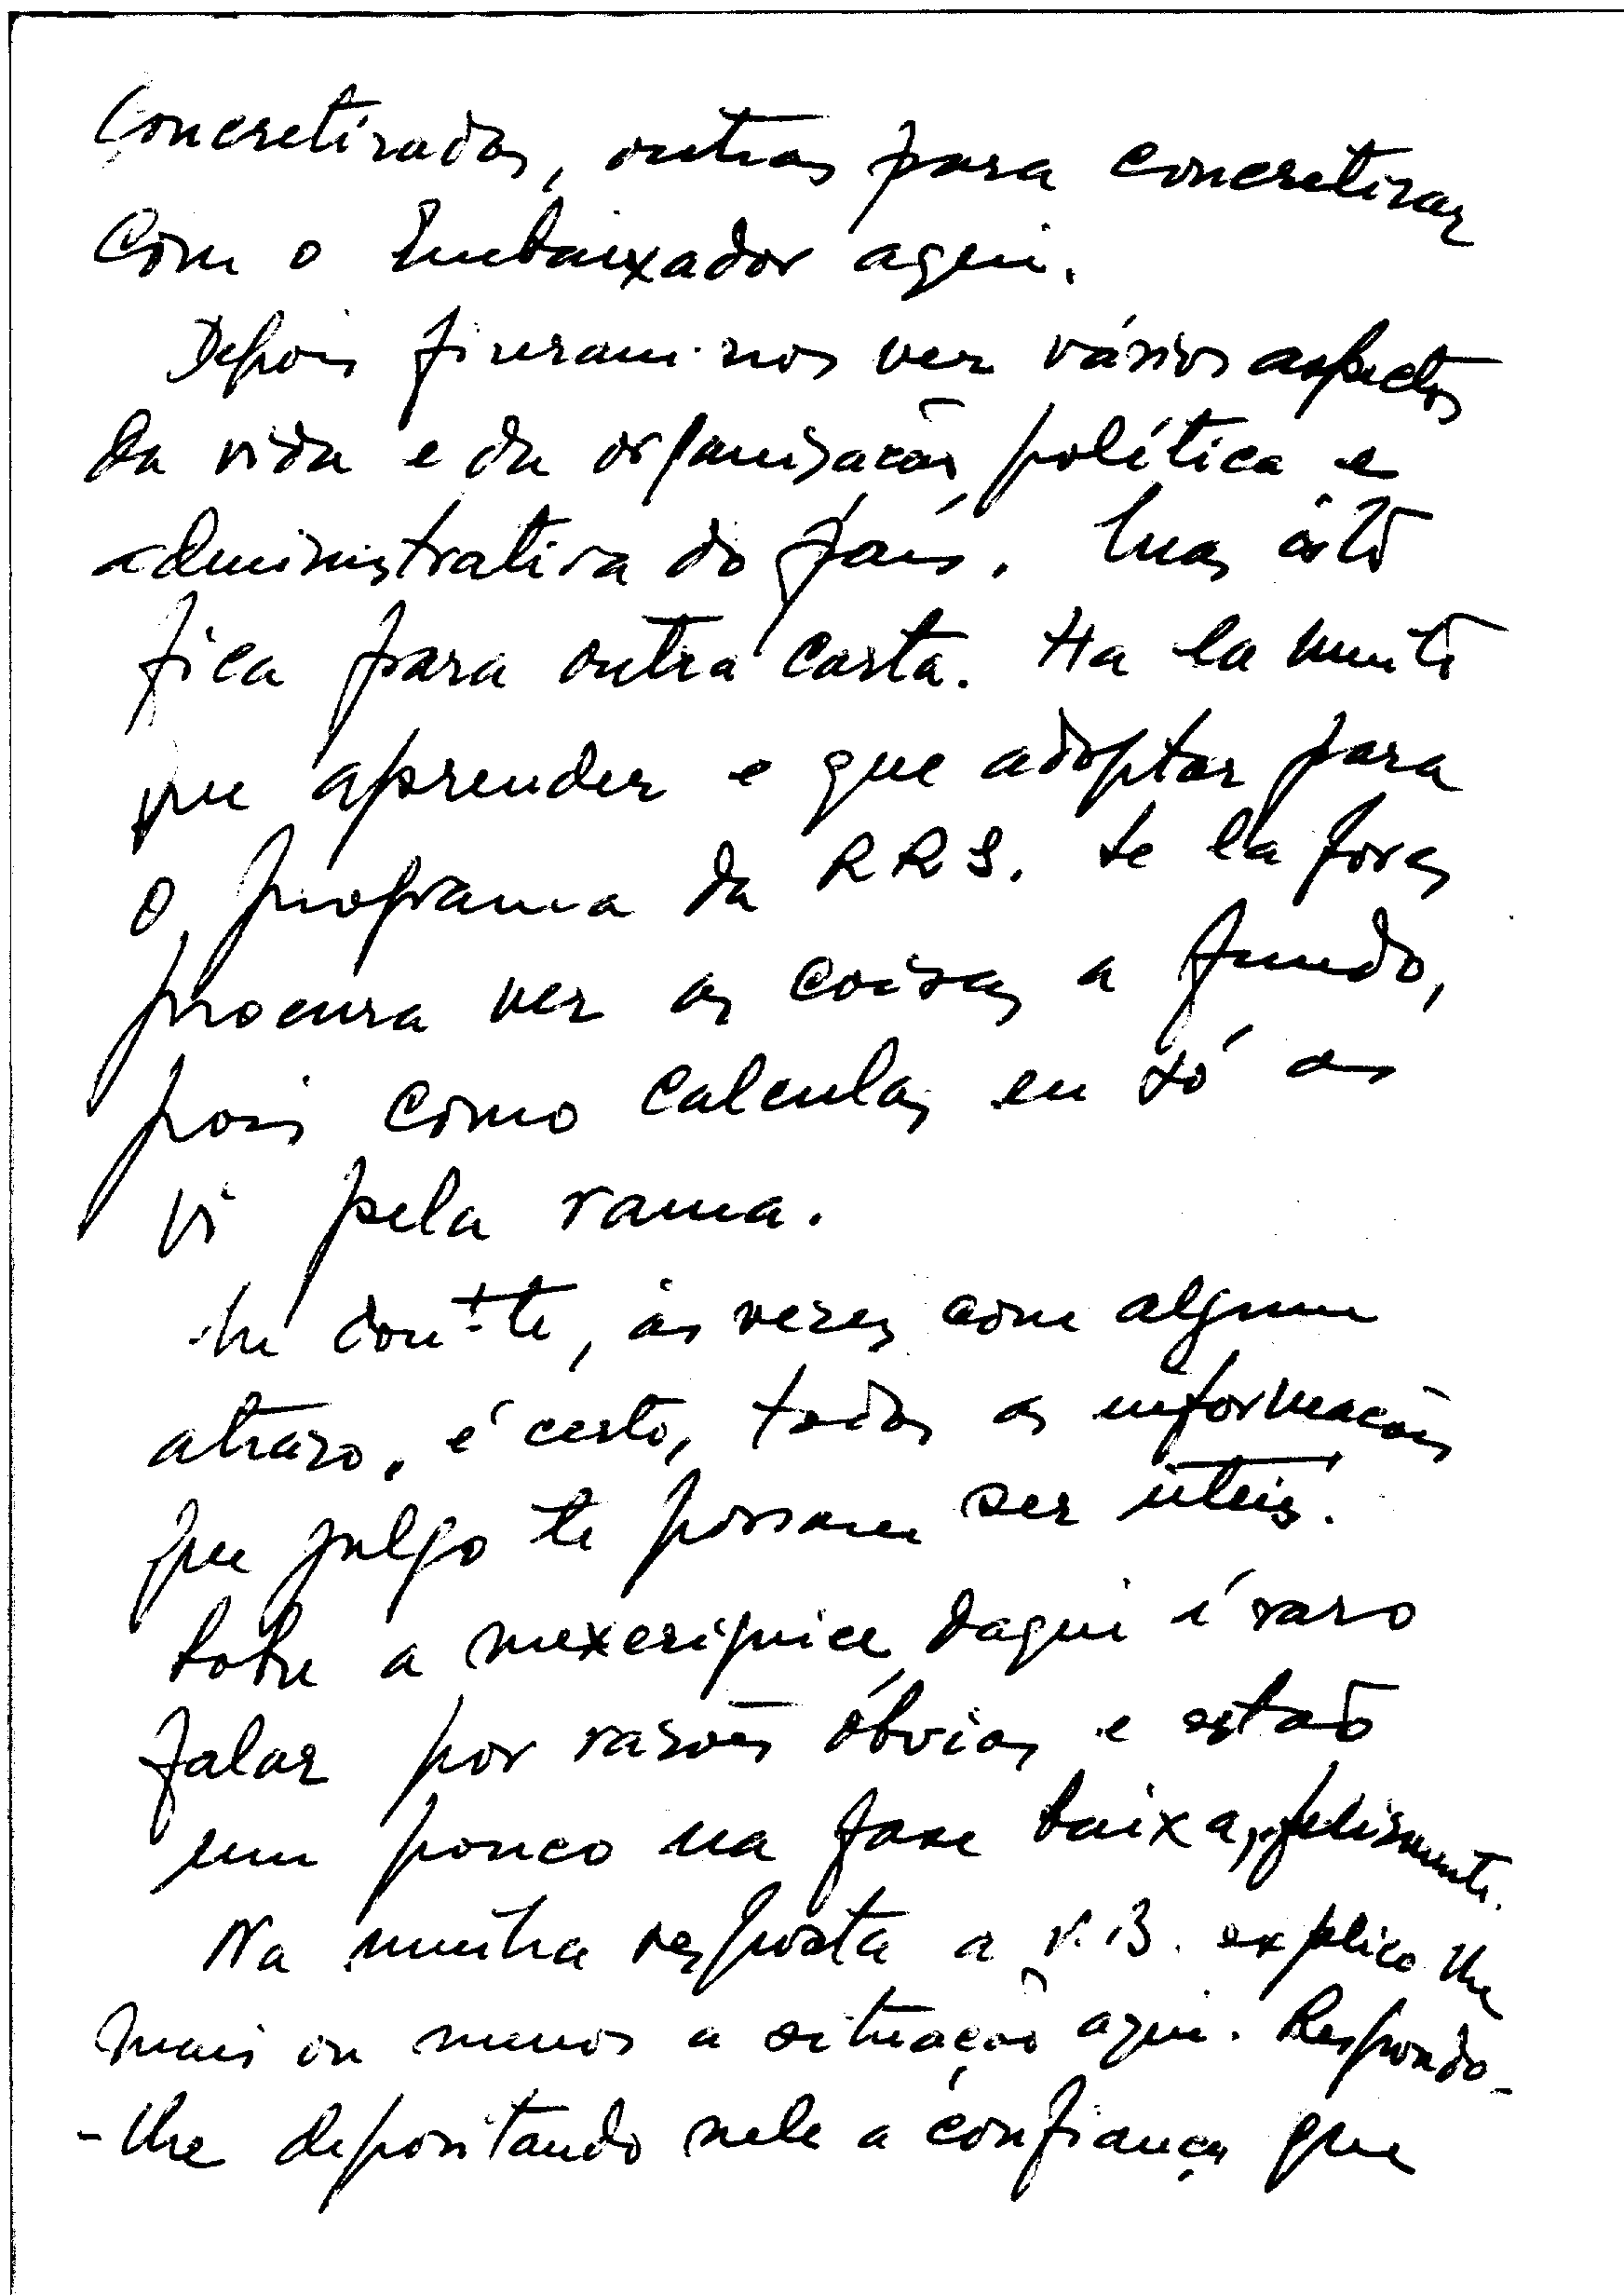 Concretizadas, outras para concretizar
Com o Embaixador aqui.
Depois fizeram-nos ver vários aspectos
da vida e da organização política e
administrativa do país. Mas isto
fica para outra carta. Ha la muito
que aprender e que adoptar para
o programa da RRS. Se la fores
procura ver as coisas a fundo,
pois como calculas, eu só as
vi pela rama.
dou-te, às vezes com algum
atrazo, é certo, todas as informações
que julgo te possam ser úteis.
Sobre a mexeriquice daqui é raro
falar por razões óbvias e estão
um pouco na fase baixa, felizmente.
Na minha resposta a V.B. explico lhe
mais ou menos a situação aqui. Respondo-
-lhe depositando nele a confiança que